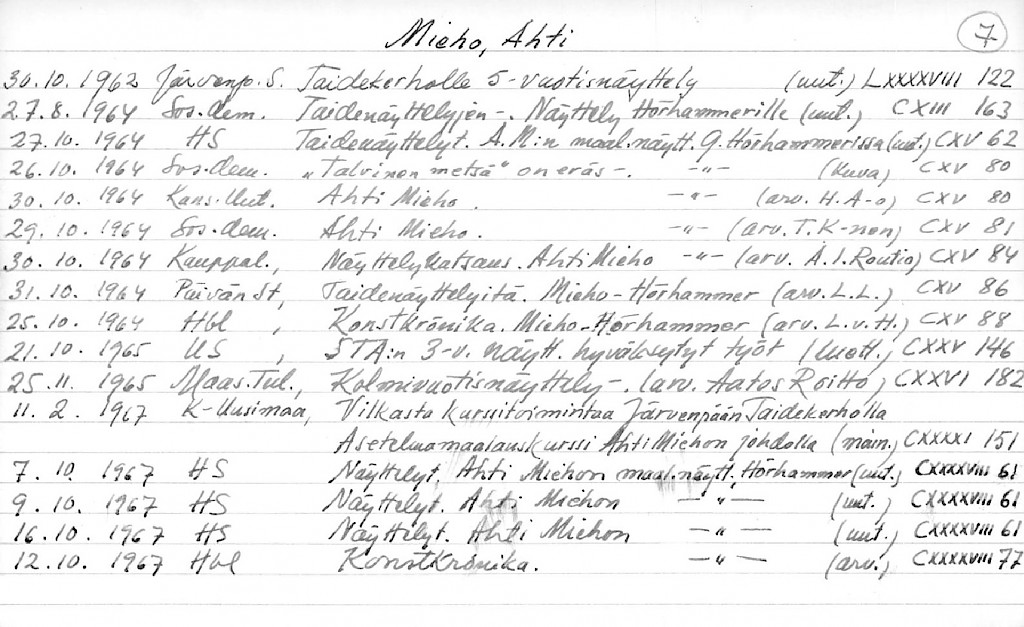 Mieho, Ahti
7
30.10.1962 Järvenp.S. Taidekerholle 5-vuotisnäyttely (uut.) LXXXXVIII 122
27.8.1964 Sos.dem. Taidenäyttelyjen-. Näyttely Hörhammerille (uut.) CXIII 163
27.10.1964 HS Taidenäyttelyt. A.M:n maal.näytt. G.Hörhammerissa (uut.) CXV 62
26.10.1964 Sos.dem. "Talvinen metsä" on eräs-. -"- (kuva) CXV 80
30.10.1964 Kans.Uut. Ahti Mieho. -"- (arv. H.A-o) CXV 80
29.10.1964 Sos.dem. Ahti Mieho. -"- (arv. T.K-nen) CXV 81
30.10.1964 Kauppal., Näyttelykatsaus. Ahti Mieho -"- (arv. A.I.Routio) CXV 84
31.10.1964 Päivän St, Taidenäyttelyitä. Mieho-Hörhammer (arv. L.L.) CXV 86
25.10.1964 Hbl , Konstkrönika. Mieho-Hörhammer (arv. L.v.H.) CXV 88
21.10.1965 US , STA:n 3-v. näytt. hyväksytyt työt (luett.) CXXV 146
25.11.1965 Maas.Tul., Kolmivuotisnäyttely-. (arv. Aatos Roitto) CXXVI 182
11.2.1967 K-Uusimaa, Vilkasta kurssitoimintaa Järvenpään Taidekerholla
Asetelmamaalauskurssi Ahti Miehon johdolla (main.) CXXXXI 151
7.10.1967 HS Näyttelyt. Ahti Miehon maal.näytt. Hörhammer (uut.) CXXXXVIII 61
9.10.1967 HS Näyttelyt. Ahti Miehon -"- (uut.) CXXXXVIII 61
16.10.1967 HS Näyttelyt. Ahti Miehon -"- (uut.) CXXXXVIII 61
12.10.1967 Hbl Konstkrönika. -"- (arv.) CXXXXVIII 77